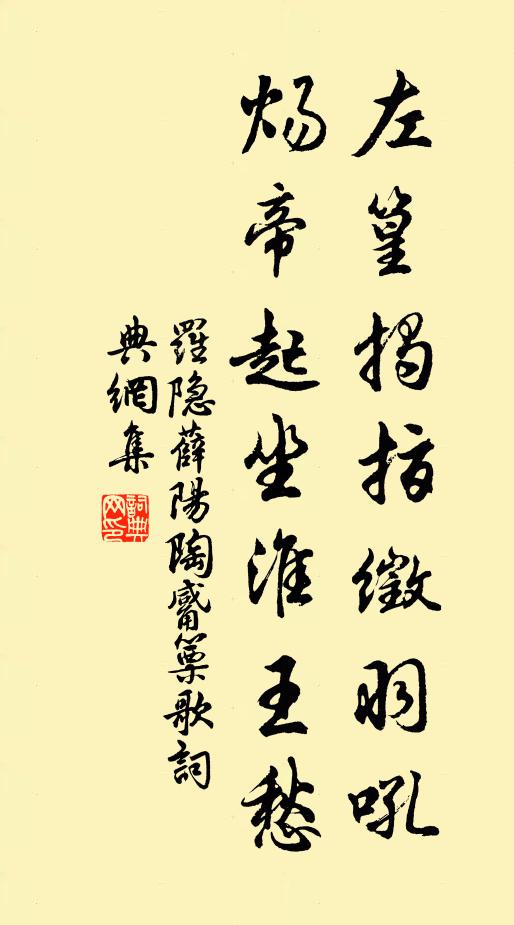 左篁揭指徵羽吼
煬帝起坐淮王愁
羅隱薛陽陶觱篥歌詞
典網集
詞典網印